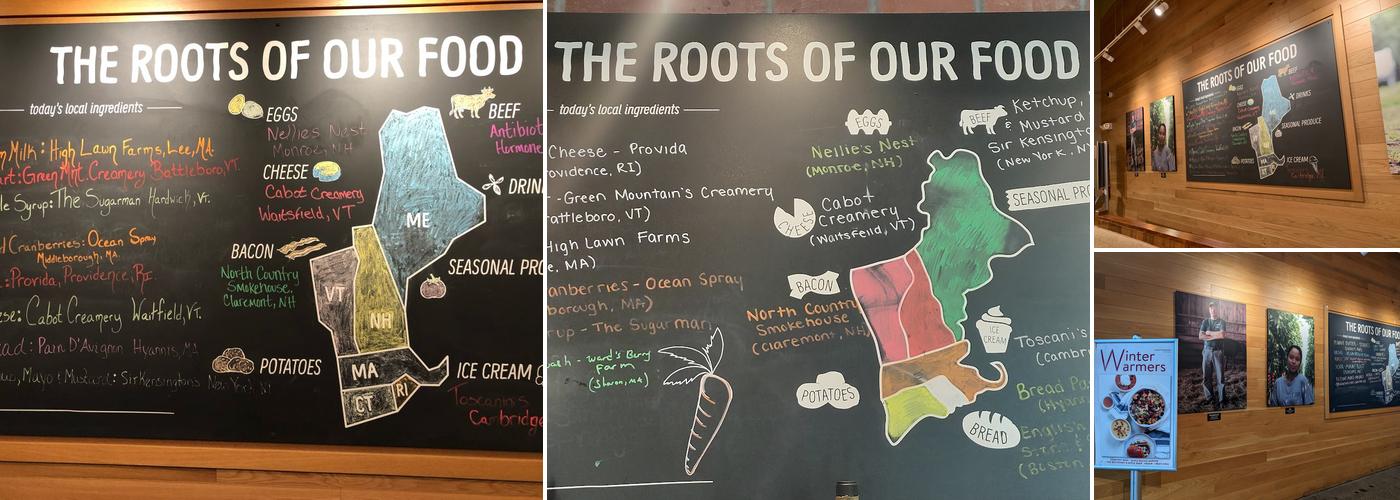 THE ROOTS OF OUR FOOD
today's local ingredients
Milk: High Lawn Farms, Lee, MA.
Green Mnt. Creamery Battleboro, VT.
Syrup: The Sugarman Hardwich, VT.
Cranberries: Ocean Spray
Middleborough, MA.
Provida, Providence, RI.
Cabot Creamery Waitfield, VT.
Pain D'Avignon Hyannis, MA
Mayo & Mustard: Sir Kensingtons New York, NY
EGGS
Nellies Nest
Monroe, NH
CHEESE
Cabot Creamery
Waitsfield, VT
BACON
North Country
Smokehouse,
Claremont, NH
POTATOES
BEEF
Antibiot
Hormone
DRIN
SEASONAL PRO
ICE CREAM &
Toscanini's
Cambridge
ME
VT
NH
MA
CT
RI
THE ROOTS OF OUR FOOD
today's local ingredients
Cheese - Provida
ovidence, RI)
- Green Mountain's Creamery
attleboro, VT)
High Lawn Farms
e, MA)
anberries - Ocean Spray
borough, MA)
rup - The Sugarman
ash - Ward's Berry
Farm
(Sharon, MA)
EGGS
Nellie's Nest
(Monroe, NH)
CHEESE
Cabot
Creamery
(Waitsfeild, VT)
BACON
North Country
Smokehouse
(Claremont, NH)
POTATOES
BEEF
Ketchup,
& Mustard
Sir Kensingto
(New York, NY
SEASONAL PRO
ICE
CREAM
Toscani's
(Cambri
BREAD
Bread Pa
(Hyann
English
(Boston
THE ROOTS OF OUR FOOD
EGGS
CHEESE
BACON
POTATOES
BEEF
DRINKS
SEASONAL PRODUCE
ICE CREAM
ME
MA
THE ROOTS OF OUR FOOD
Winter
Warmers